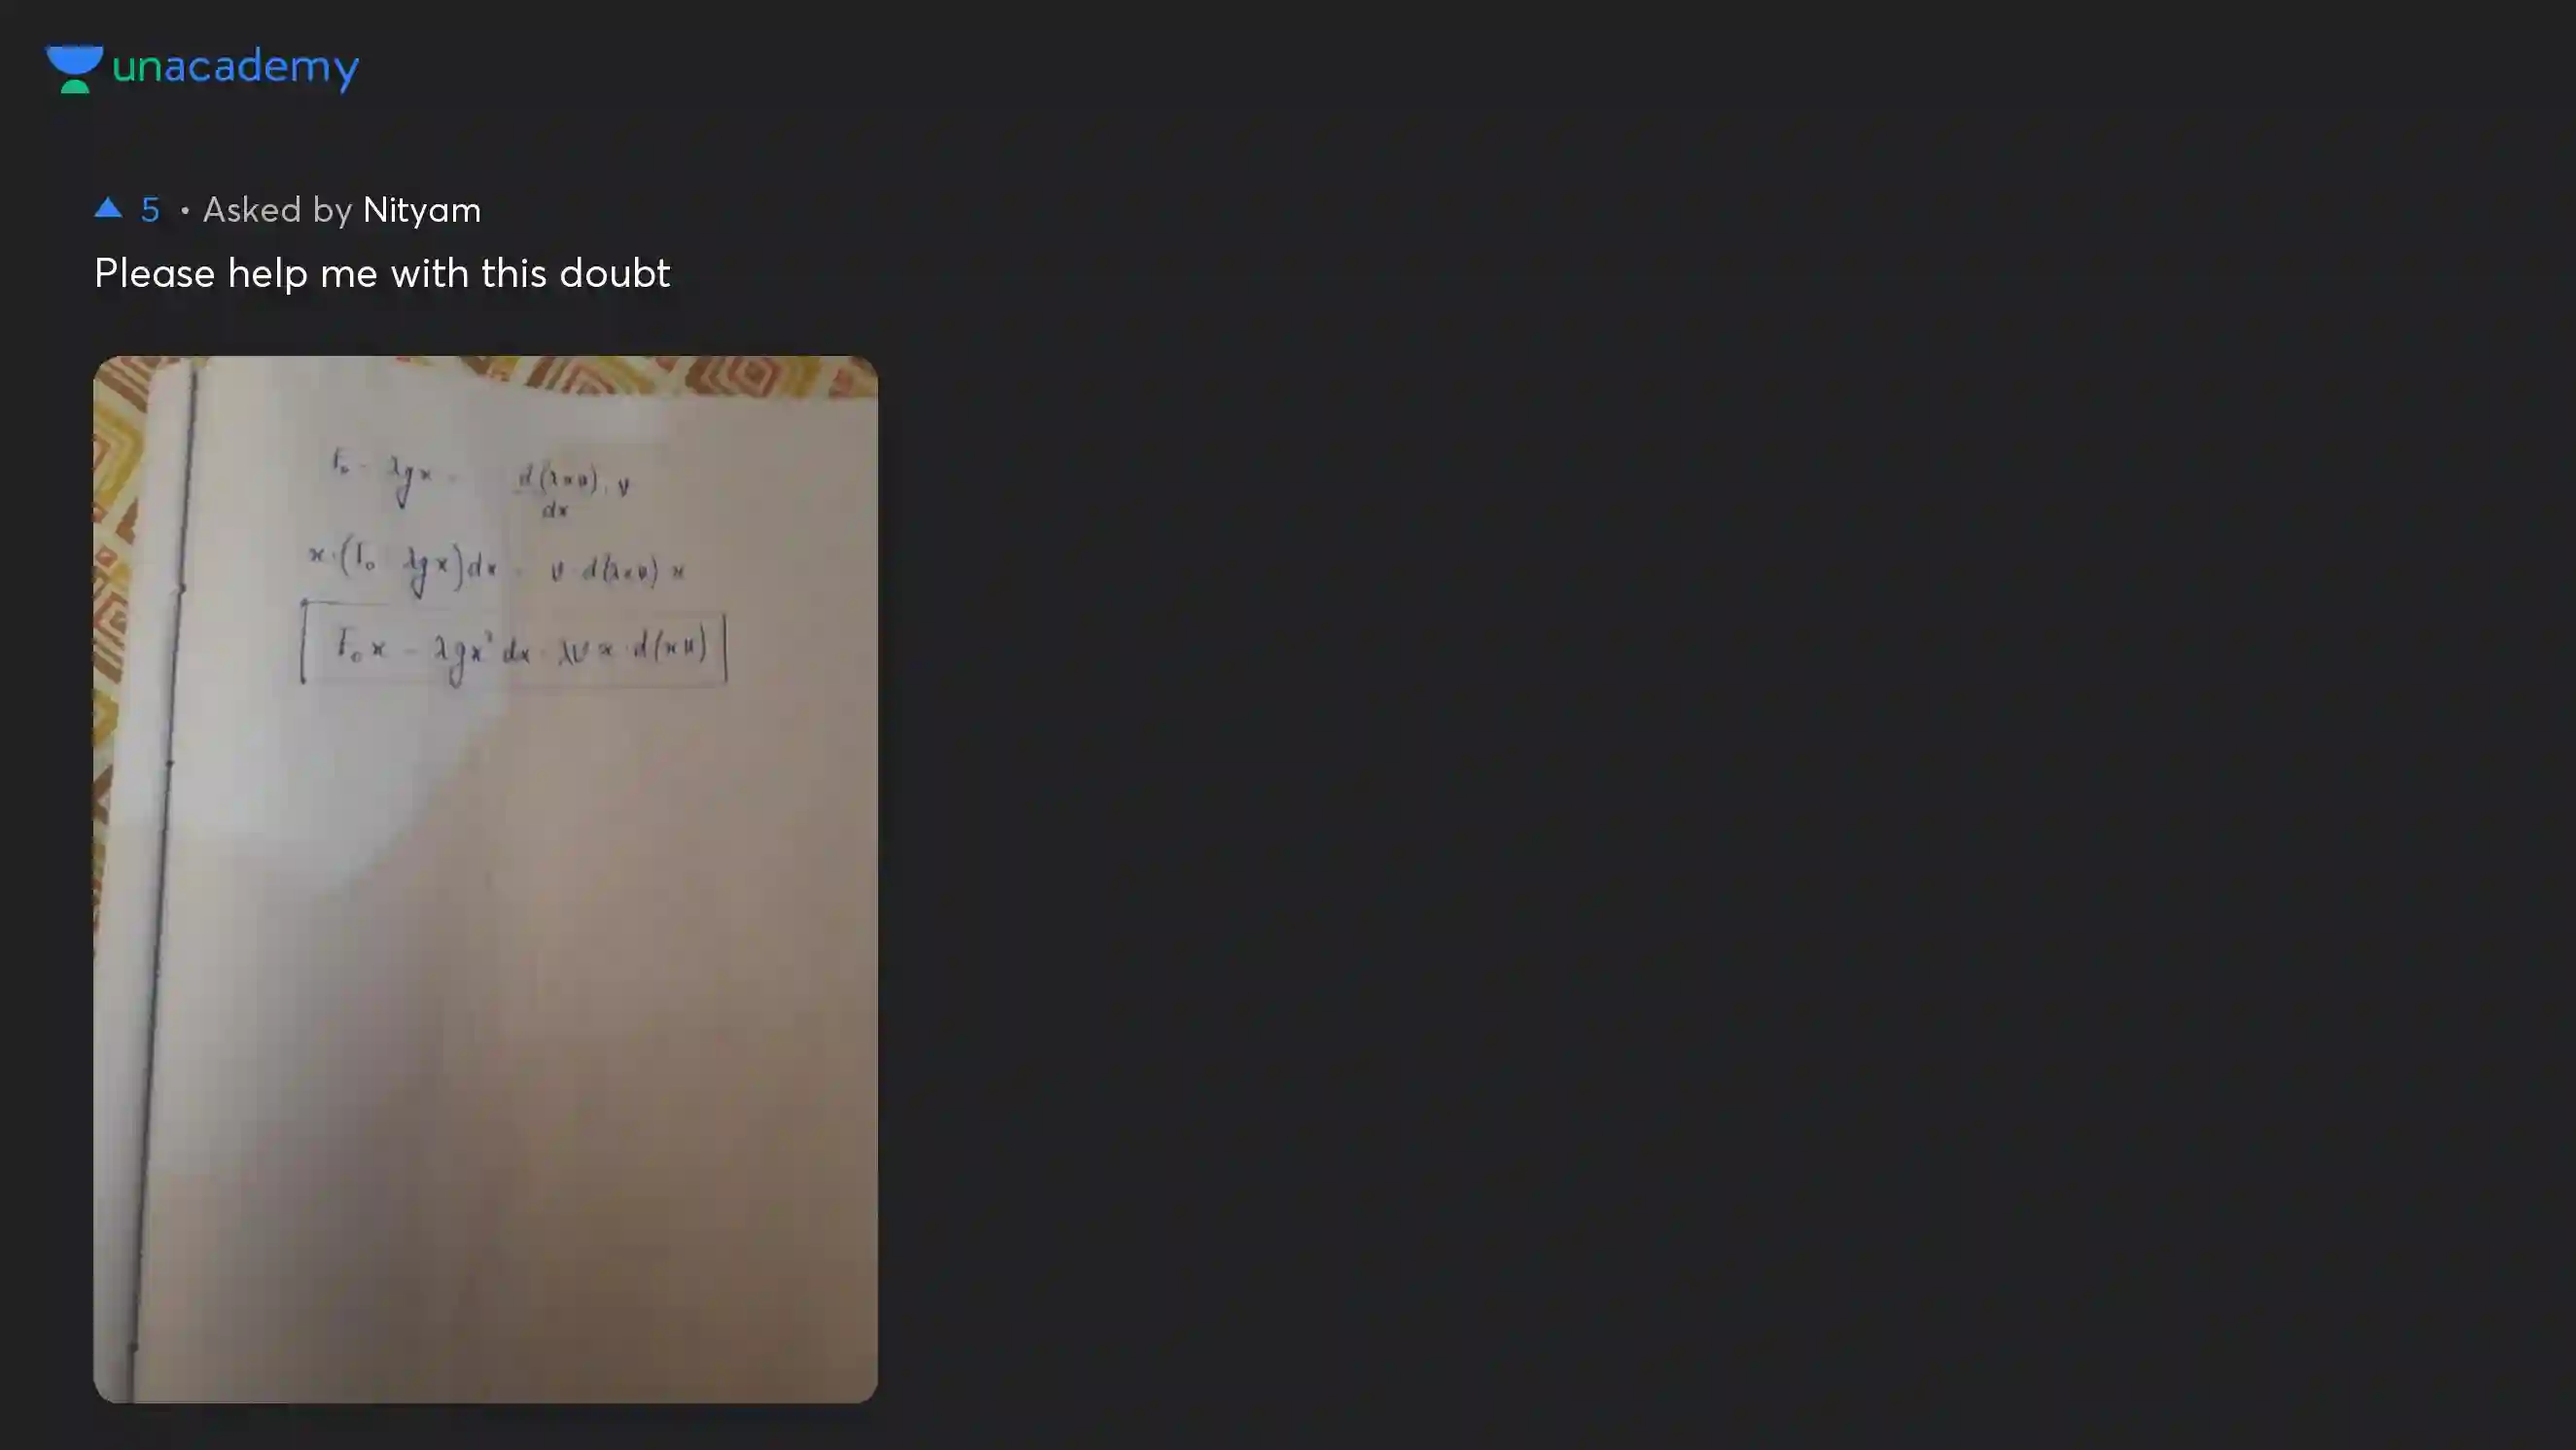 unacademy
5 • Asked by Nityam
Please help me with this doubt
F₀ - λgx = d(λxv) . v
dx
x.(F₀ λgx)dx = v d(λxv) x
F₀x - λgx² dx = λvx d(xv)